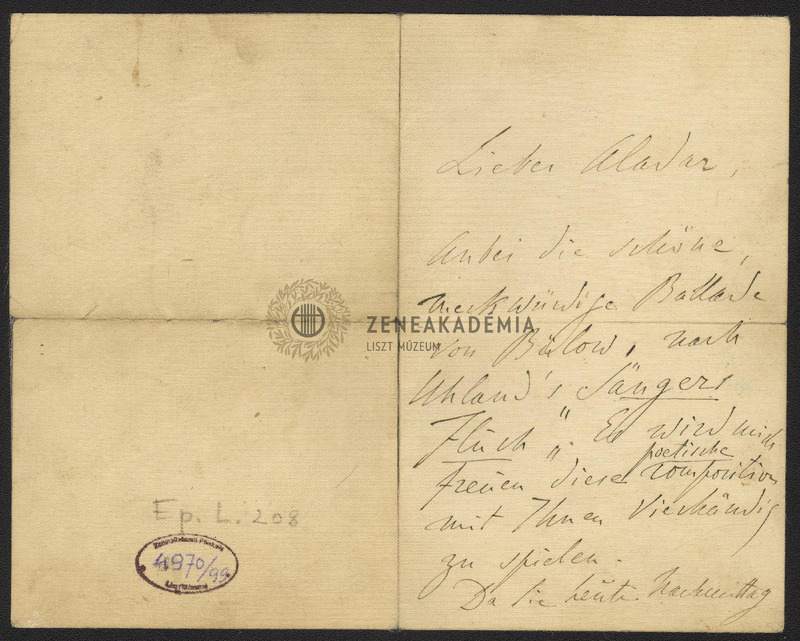 Lieber Aladar,
Anbei die schöne,
merkwürdige Ballade
von Bülow, nach
Uhland's Sängers
Fluch". Es wird mich
poetische
freuen diese Composition
mit Ihnen Vierhändig
zu spielen.
Da Sie heute Nachmittag
ZENEAKADÉMIA
LISZT MÚZEUM
Ep. L. 208
4970/99